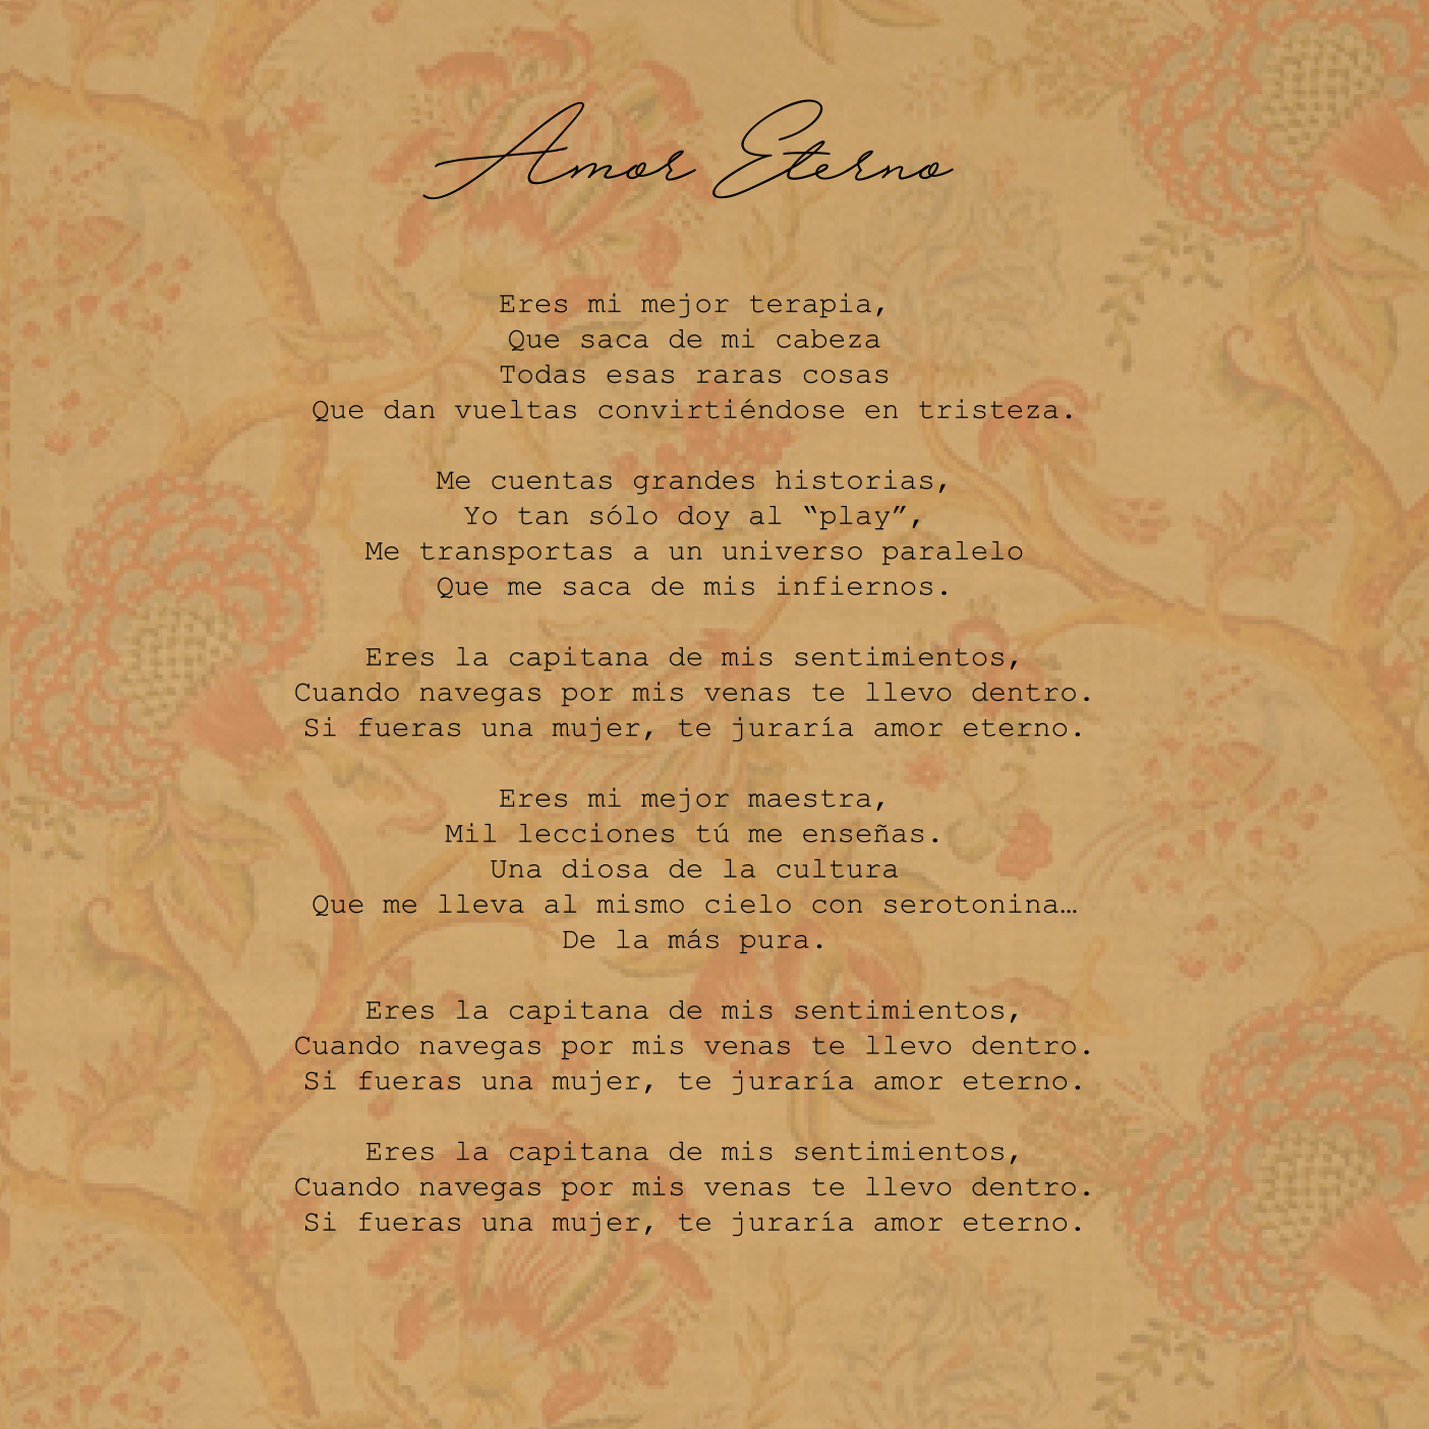 Amor Eterno
Eres mi mejor terapia,
Que saca de mi cabeza
Todas esas raras cosas
Que dan vueltas convirtiéndose en tristeza.
Me cuentas grandes historias,
Yo tan sólo doy al “play”,
Me transportas a un universo paralelo
Que me saca de mis infiernos.
Eres la capitana de mis sentimientos,
Cuando navegas por mis venas te llevo dentro.
Si fueras una mujer, te juraría amor eterno.
Eres mi mejor maestra,
Mil lecciones tú me enseñas.
Una diosa de la cultura
Que me lleva al mismo cielo con serotonina…
De la más pura.
Eres la capitana de mis sentimientos,
Cuando navegas por mis venas te llevo dentro.
Si fueras una mujer, te juraría amor eterno.
Eres la capitana de mis sentimientos,
Cuando navegas por mis venas te llevo dentro.
Si fueras una mujer, te juraría amor eterno.